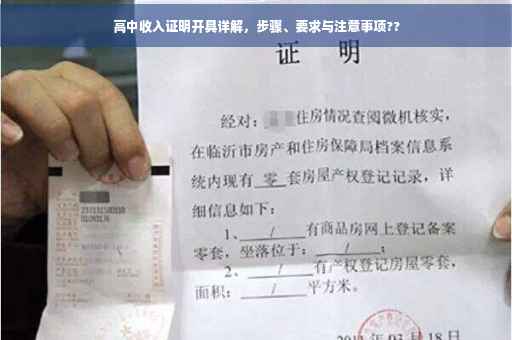 高中收入证明开具详解，步骤、要求与注意事项??
证 明
经对：住房情况查阅微机核实，
在临沂市房产和住房保障局档案信息系
统内现有 零 套房屋产权登记记录，详
细信息如下：
1、 / 有商品房网上登记备案
零套，坐落位于： / ；
2、 / 有产权登记房屋零套，
面积： / 平方米。
03月18日